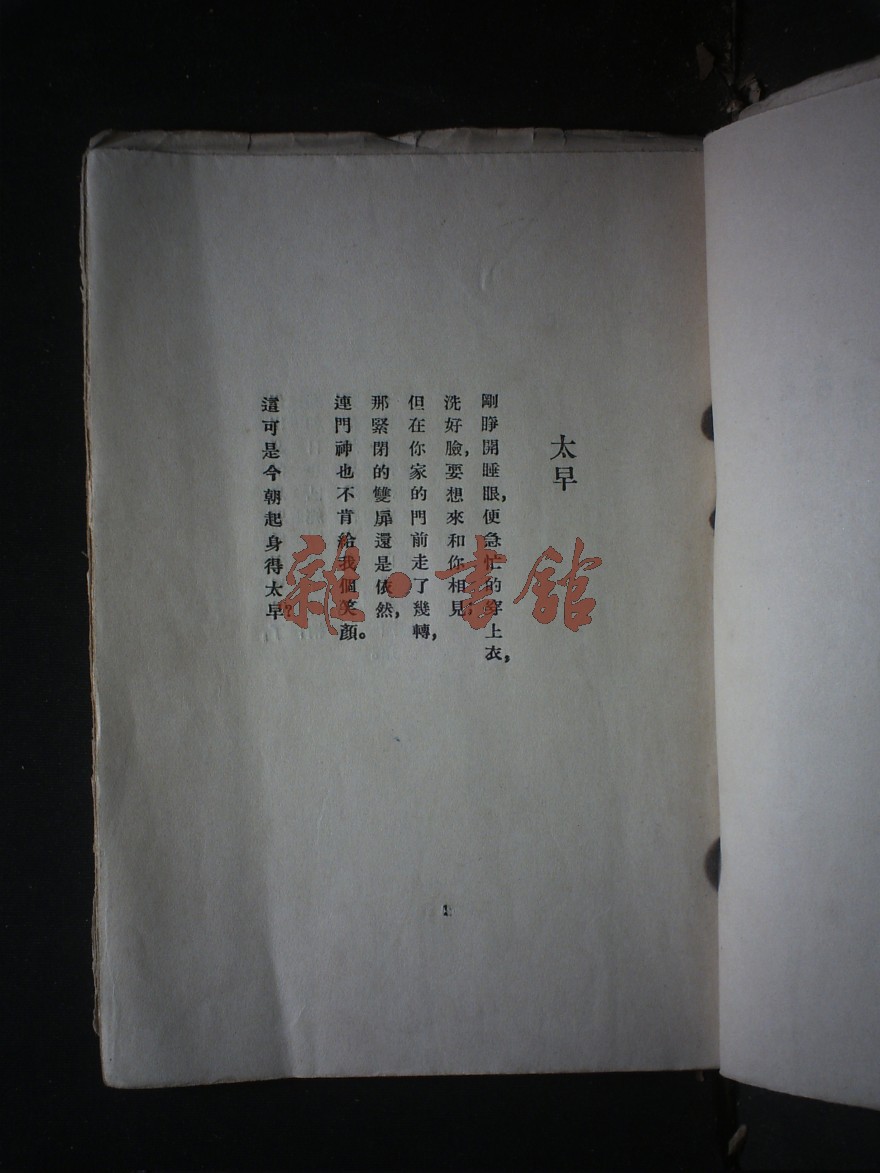 太早
剛睜開睡眼，便急忙的穿上衣，
洗好臉，要想來和你相見；
但在你家的門前走了幾轉，
那緊閉的雙扉還是依然，
連門神也不肯給我個笑顏。
這可是今朝起身得太早？
1
雜·書館